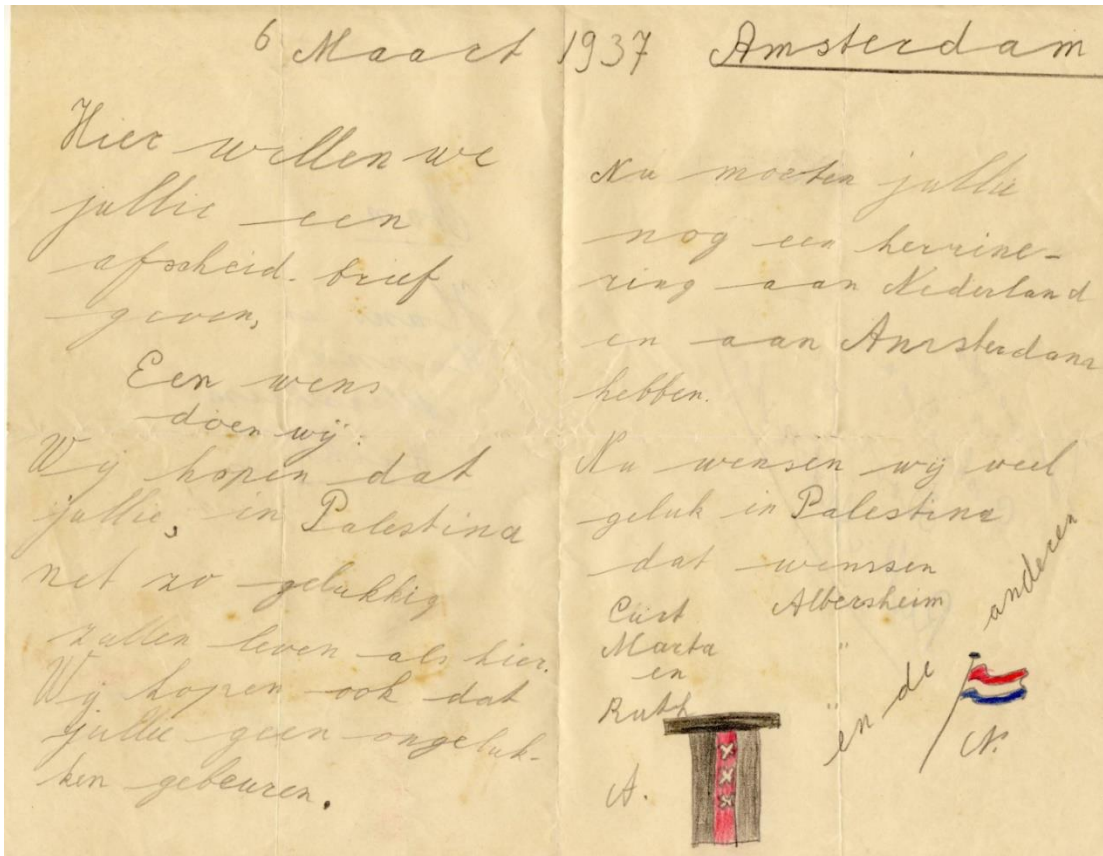 6 Maart 1937 Amsterdam
Hier willen we
jullie een
afscheid. brief
geven,
Een wens
doen wij:
Wij hopen dat
jullie, in Palestina
net zo gelukkig
zullen leven als hier.
Wij hopen ook dat
jullie geen ongeluk-
ken gebeuren.
Nu moeten jullie
nog een herrine-
ring aan Nederland
en aan Amsterdam
hebben.
Nu wensen wij veel
geluk in Palestina
dat wenssen
Curt Albersheim
Marta "
en
Ruth "
en de anderen
A.
N.